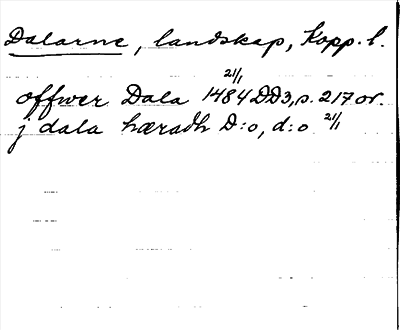 Dalarne, landskap, Kopp. l.
offwer Dala 21/1 1484 DD3, s. 217 or.
j dala hæradh D:o, d:o 21/1